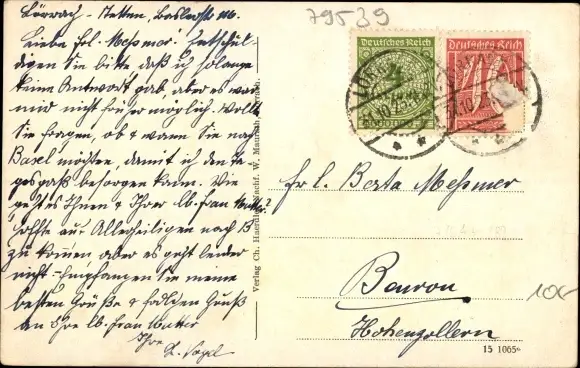 Lörrach - Stetten, Baslerstr. 116.
Liebe Frl. Messmer! Entschul-
digen Sie bitte daß ich so lange
keine Antwort gab, aber es war
mir nicht früher möglich. Wollte
Sie fragen, ob & wann Sie nach
Basel möchten, damit ich den Ta-
gespaß besorgen kann. Wie
geht es Ihnen & Ihrer lb. Frau Mutter?
Hoffte auf Allerheiligen nach B
zu kommen, aber es geht leider
nicht. Empfangen Sie meine
besten Grüße & solchen Gruß
an Ihre lb. Frau Mutter
Ihre
L. Vogel
79539
Deutsches Reich
Deutsches Reich
Verlag Ch. Nachf. W.
Frl. Berta Messmer
Beuron
Hohenzollern
10.-
15 1065